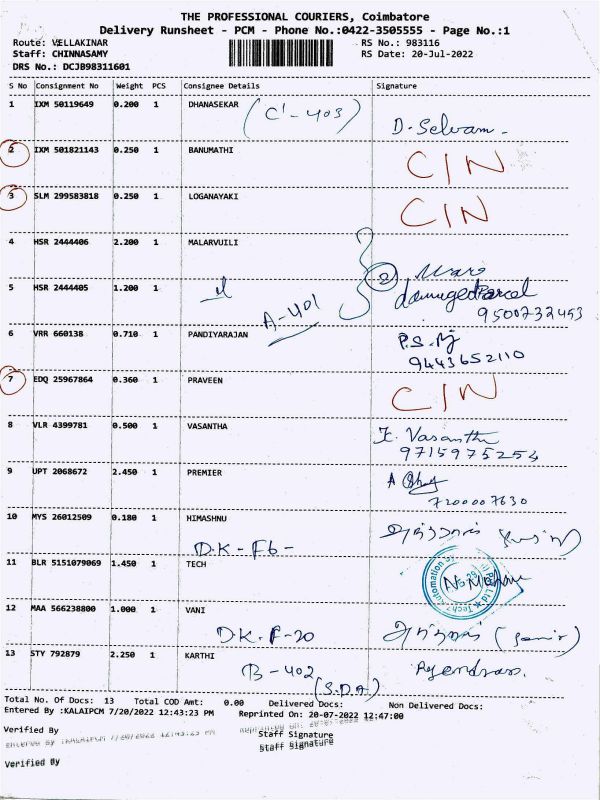 THE PROFESSIONAL COURIERS, Coimbatore
Delivery Runsheet - PCM - Phone No.:0422-3505555 - Page No.:1
Route: VELLAKINAR RS No.: 983116
Staff: CHINNASAMY RS Date: 20-Jul-2022
DRS No.: DCJB98311601
S No Consignment No Weight PCS Consignee Details Signature
1 IXM 50119649 0.200 1 DHANASEKAR (C1-403)
D. Selvam -
2 IXM 501821143 0.250 1 BANUMATHI CIN
3 SLM 299583818 0.250 1 LOGANAYAKI CIN
4 HSR 2444406 2.200 1 MALARVUILI
2
5 HSR 2444405 1.200 1 damaged Parcel
A-401 9500732453
6 VRR 660138 0.710 1 PANDIYARAJAN
9443652110
7 EDQ 25967864 0.360 1 PRAVEEN CIN
8 VLR 4399781 0.500 1 VASANTHA Vasantha
9715975254
9 UPT 2068672 2.450 1 PREMIER
7200007630
10 MYS 26012509 0.180 1 HIMASHNU
D.K-F6-
11 BLR 5151079069 1.450 1 TECH
12 MAA 566238800 1.000 1 VANI
DK.F-20
13 STY 792879 2.250 1 KARTHI
B-402
(S.D.A)
Total No. Of Docs: 13 Total COD Amt: 0.00 Delivered Docs: Non Delivered Docs:
Entered By :KALAIPCM 7/20/2022 12:43:23 PM Reprinted On: 20-07-2022 12:47:00
Verified By Staff Signature
Staff Signature
Verified By